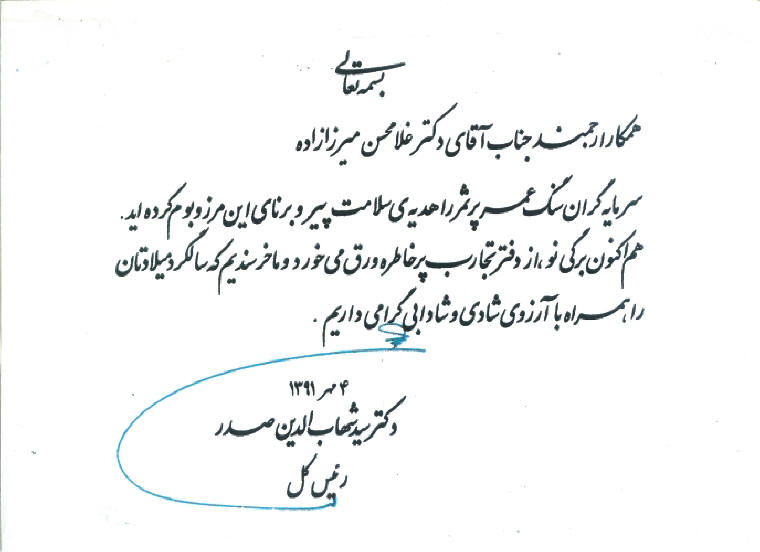 بسمه تعالی
همکار ارجمند جناب آقای دکتر غلامحسن میرزازاده
سرمایه گران سنگ عمر پر ثمر را هدیه ی سلامت پیر و برنای این مرز و بوم کرده اید.
هم اکنون برگی نو، از دفتر تجارب پر خاطره ورق می خورد و ما خرسندیم که سالگرد میلادتان
را، همراه با آرزوی شادی و شادابی گرامی داریم.
۴ مهر ۱۳۹۱
دکتر سید شهاب الدین صدر
رئیس کل